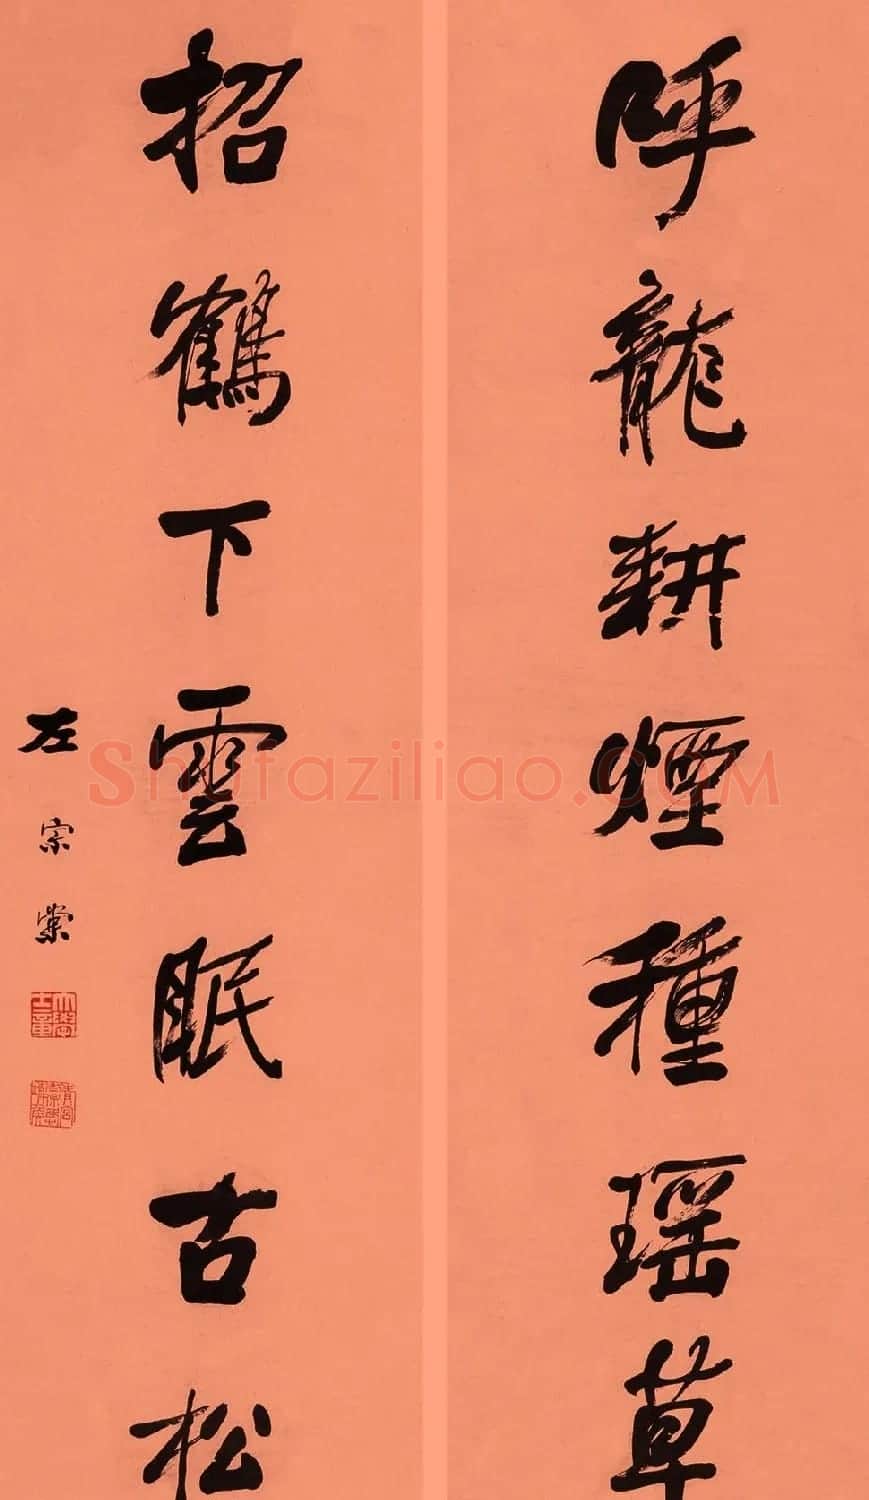 呼龍耕煙種瑶草
招鶴下雲眠古松
左宗棠
Shufaziliao.com